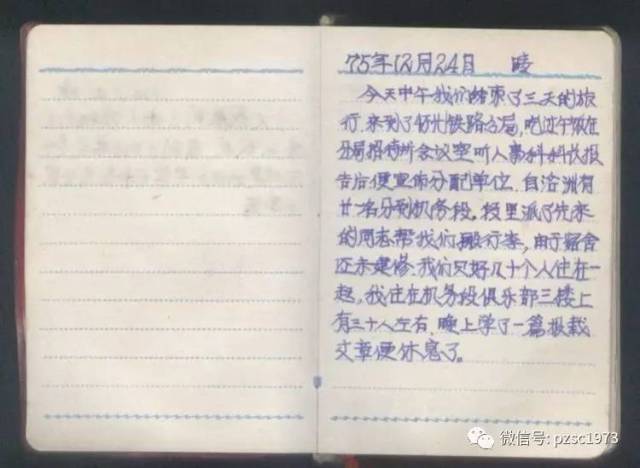 75年12月24日 晴
今天中午我们结束了三天的旅
行.来到了怀化铁路分局,吃过午饭在
分局招待所会议室听人事科科长报
告后便宣布分配单位.自洛洲有
廿名分到机务段,段里派了先来
的同志帮我们搬行李,由于宿舍
还未建修.我们只好几十个人住在一
起,我住在机务段俱乐部三楼上
有三十人左右.晚上学了一篇报载
文章便休息了。
微信号: pzsc1973